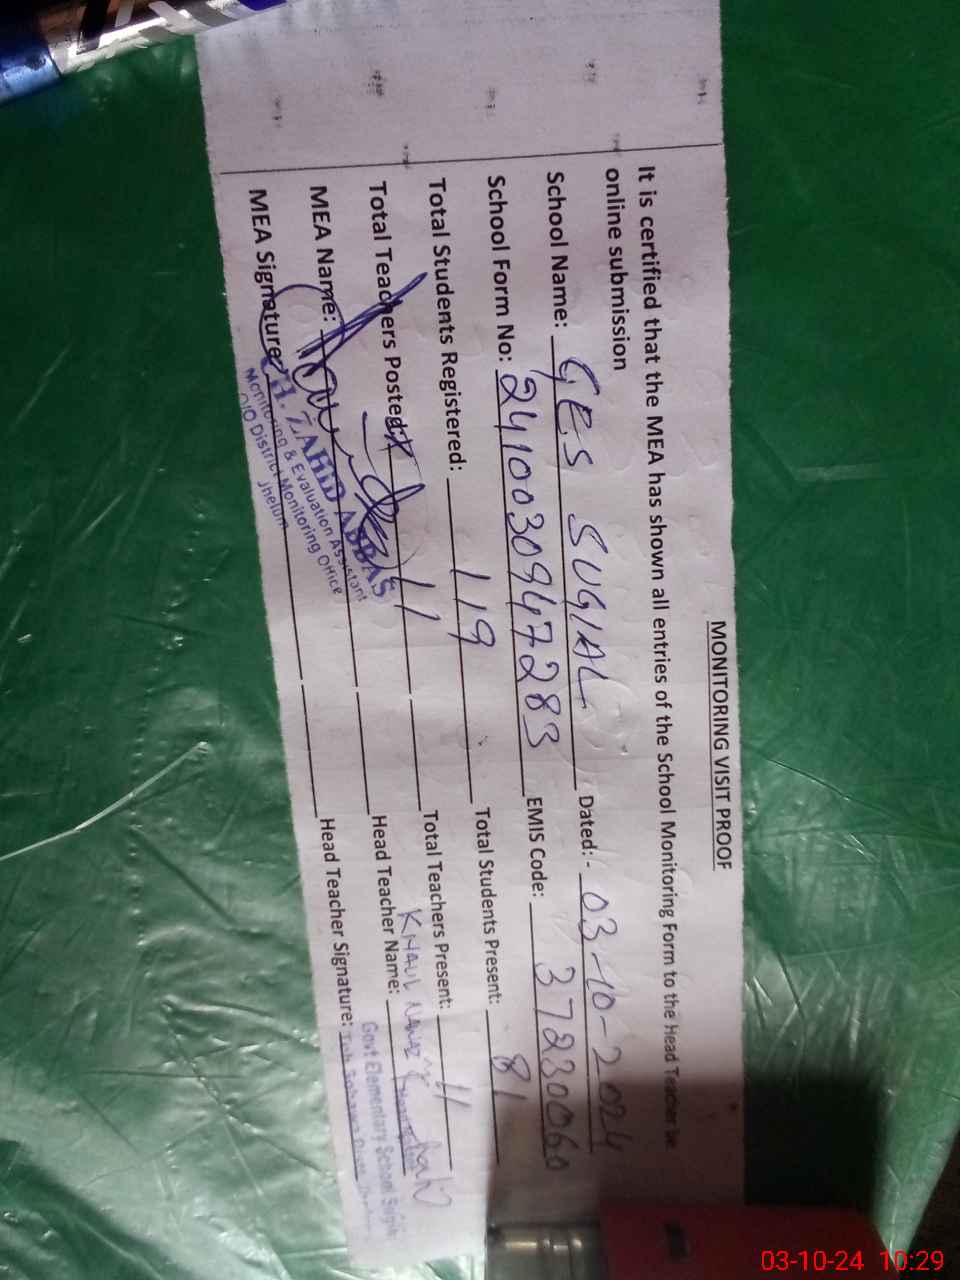 MONITORING VISIT PROOF
It is certified that the MEA has shown all entries of the School Monitoring Form to the Head Teacher
online submission
School Name: GES SUGIAL Dated:- 03-10-2024
School Form No: 2410030947283 EMIS Code: 37230060
Total Students Registered: 119 Total Students Present: 81
Total Teachers Posted: 11 Total Teachers Present: 11
MEA Name: Head Teacher Name: KHAUL NAWAZ
MEA Signature: Head Teacher Signature:
CH. ZAHID ABBAS
Monitoring & Evaluation Assistant
O/O District Monitoring Office
Jhelum
Govt Elementary School
03-10-24 10:29